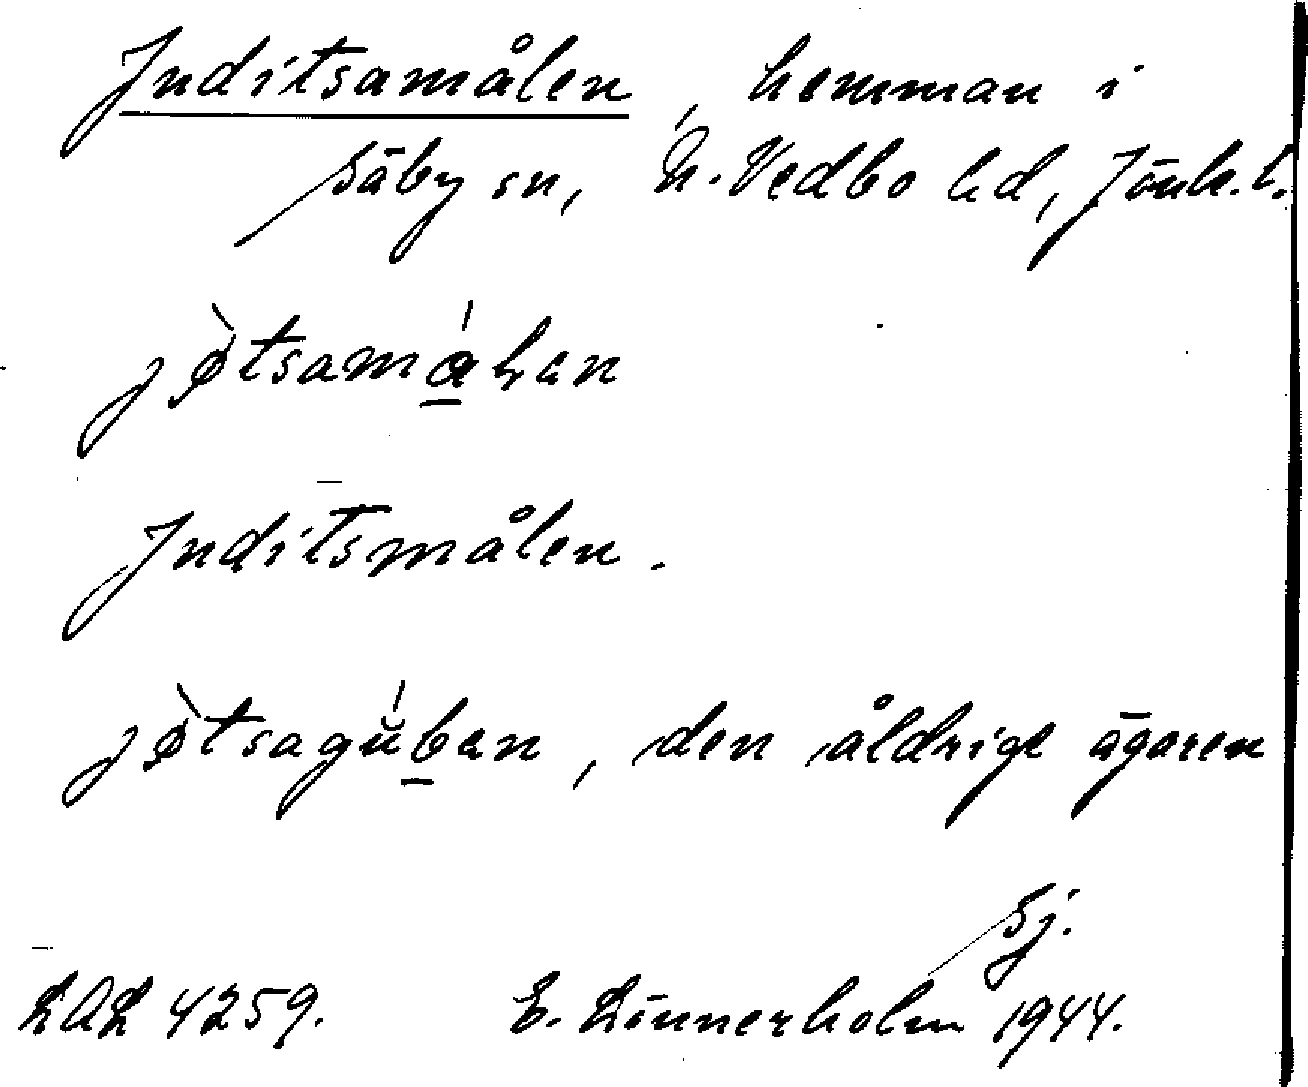 Juditsamålen, hemman i
Säby sn, N. Vedbo hd, Jönk. l.
jø̀tsamɑ́ɭan
Juditsmålen.
jø̀tsagúban, den åldrige ägaren
Sj.
LAL 4259. E. Linnerholm 1944.